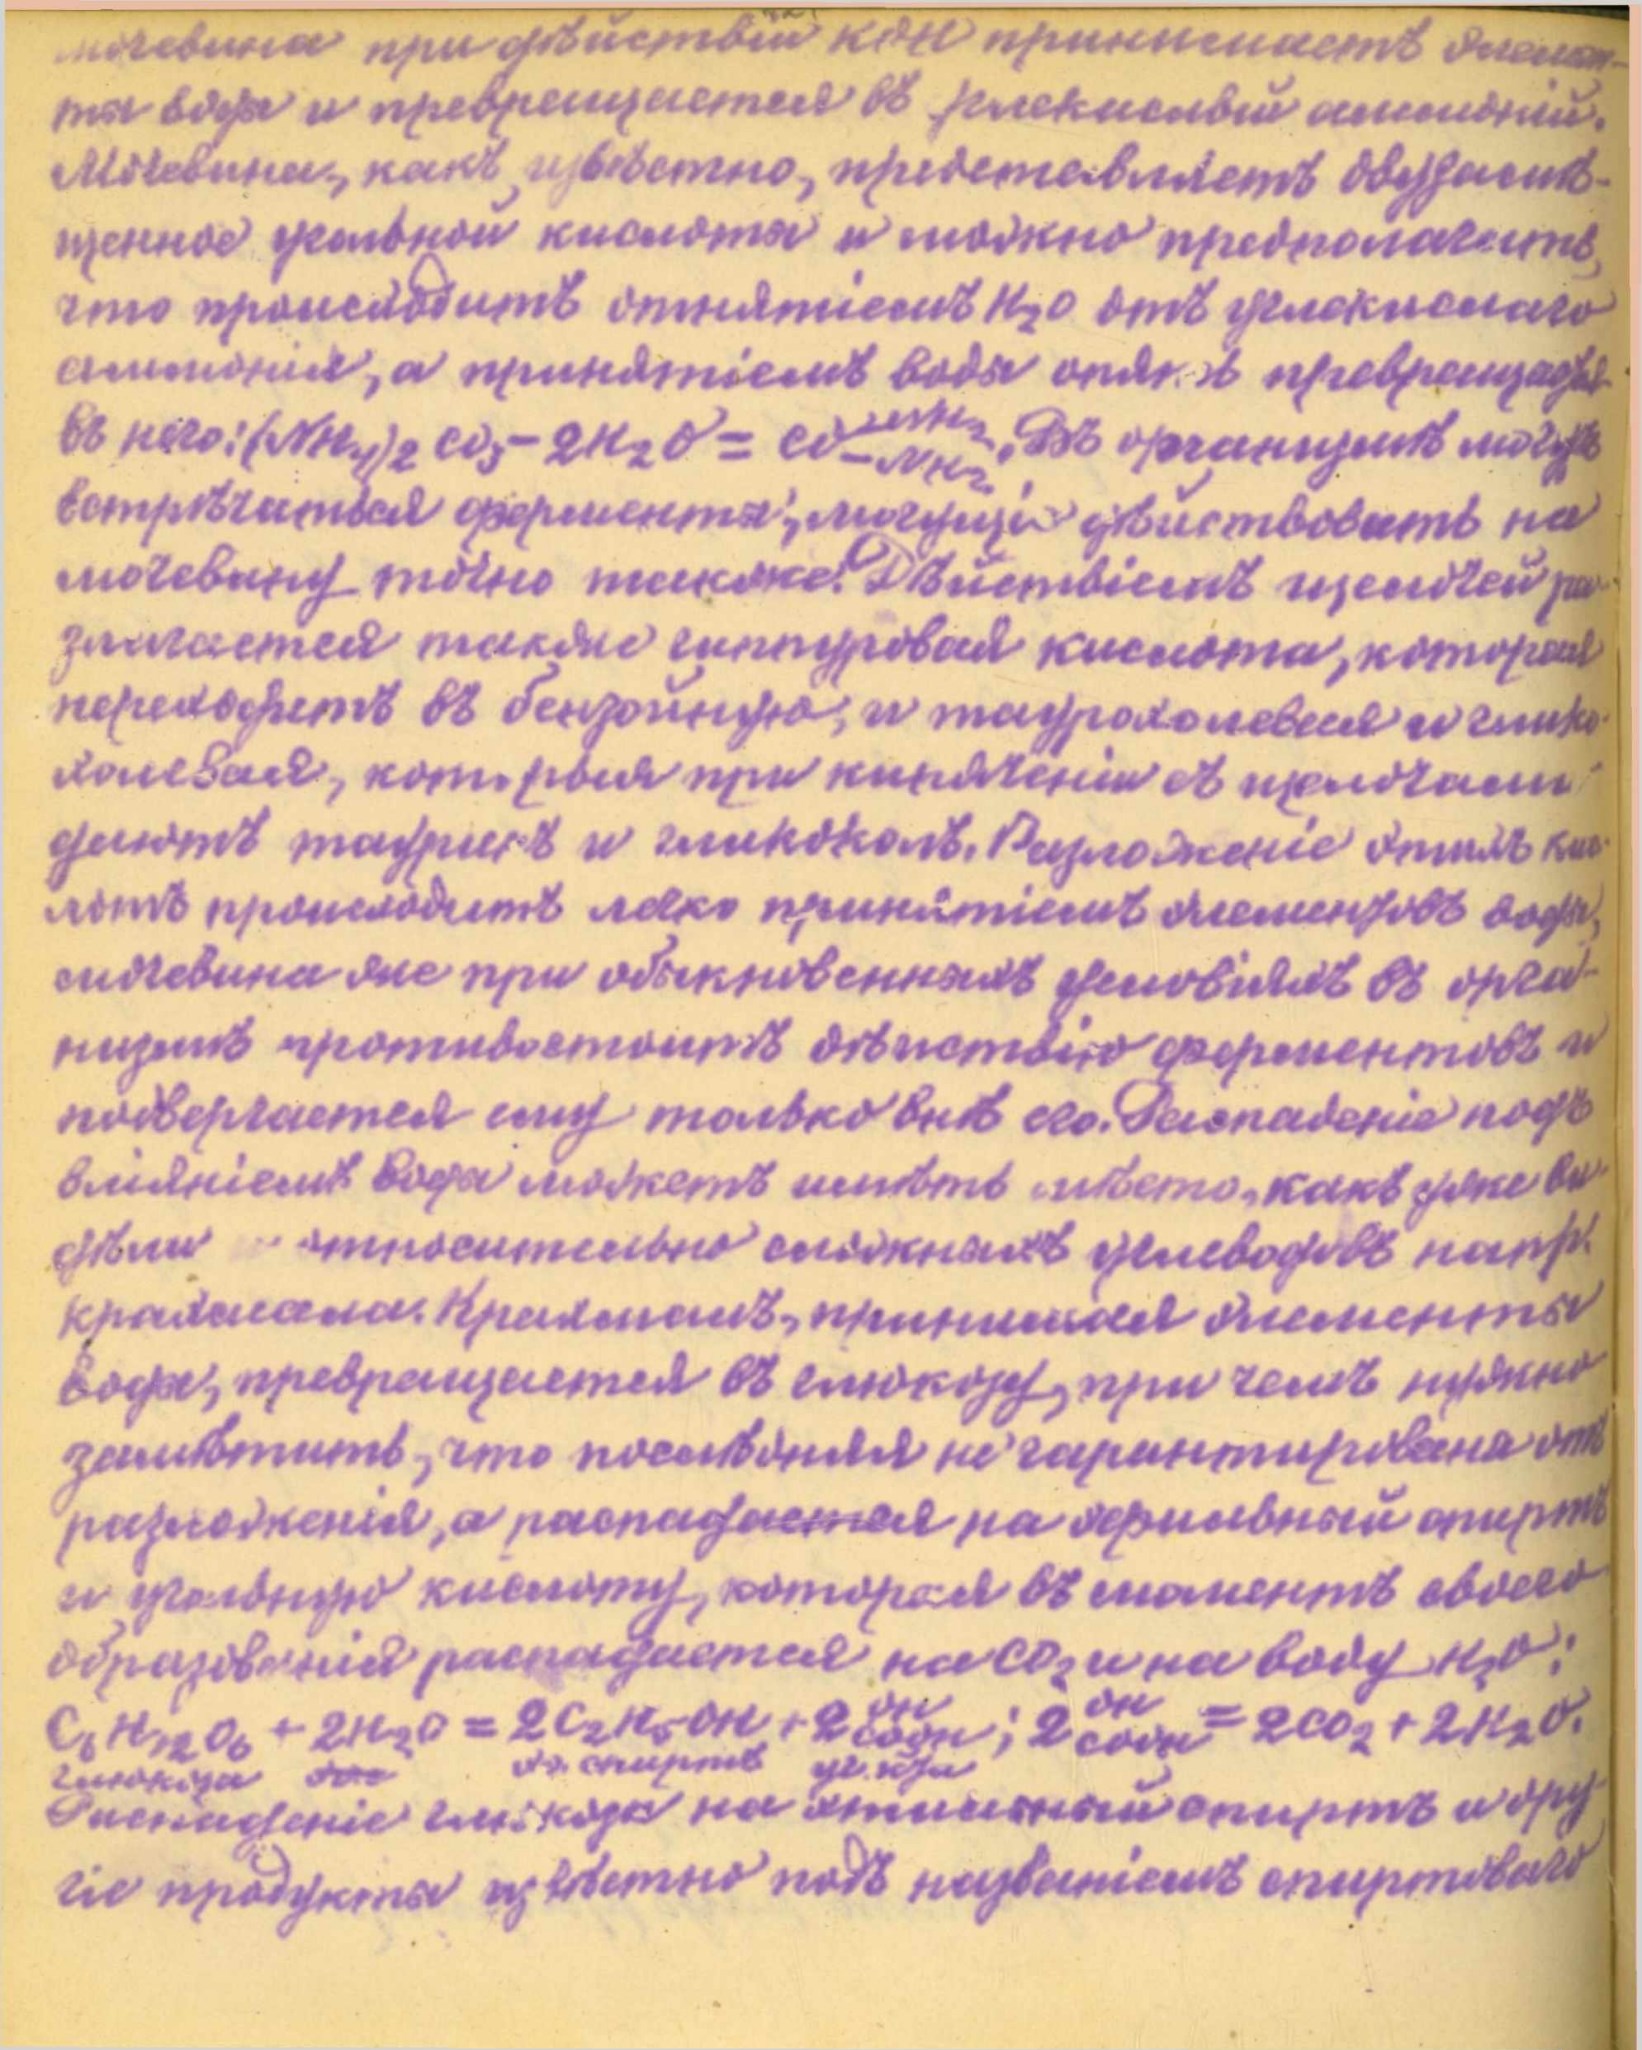 мочевина при дѣйствіи КОН принимаетъ элемен-
ты воды и превращается въ углекислый аммоній.
Мочевина, какъ извѣстно, представляетъ двузамѣ-
щенное угольной кислоты и можно предполагать,
что происходитъ отнятіемъ H2O отъ углекислаго
аммонія, а принятіемъ воды опять превращается
въ него: (NH4)2CO3 - 2H2O = CO-NH2-NH2. Въ организмѣ могутъ
встрѣчаться ферменты, могущіе дѣйствовать на
мочевину точно также. Дѣйствіемъ щелочей ра-
злагается также гиппуровая кислота, которая
переходитъ въ бензойную, и таурохолевая и глико-
холевая, которыя при кипяченіи съ щелочами
даютъ тауринъ и гликоколь. Разложеніе этихъ кис-
лотъ происходитъ легко принятіемъ элементовъ воды,
мочевина же при обыкновенныхъ условіяхъ въ орга-
низмѣ противостоитъ дѣйствію ферментовъ и
подвергается ему только внѣ его. Распаденіе подъ
вліяніемъ воды можетъ имѣть мѣсто, какъ уже ви-
дѣли относительно сложныхъ углеводовъ напр.
крахмала. Крахмалъ, принимая элементы
воды, превращается въ глюкозу, при чемъ нужно
замѣтить, что послѣдняя не гарантирована отъ
разложенія, а распадается на этильный спиртъ
и угольную кислоту, которая въ моментъ своего
образованія распадается на CO2 и на воду H2O:
C6H12O6 + 2H2O = 2C2H5OH + 2 OH COOH; 2 OH COOH = 2CO2 + 2H2O.
глюкоза эт. спиртъ уг. к-та
Распаденіе глюкозы на этильный спиртъ и дру-
гіе продукты извѣстно подъ названіемъ спиртоваго